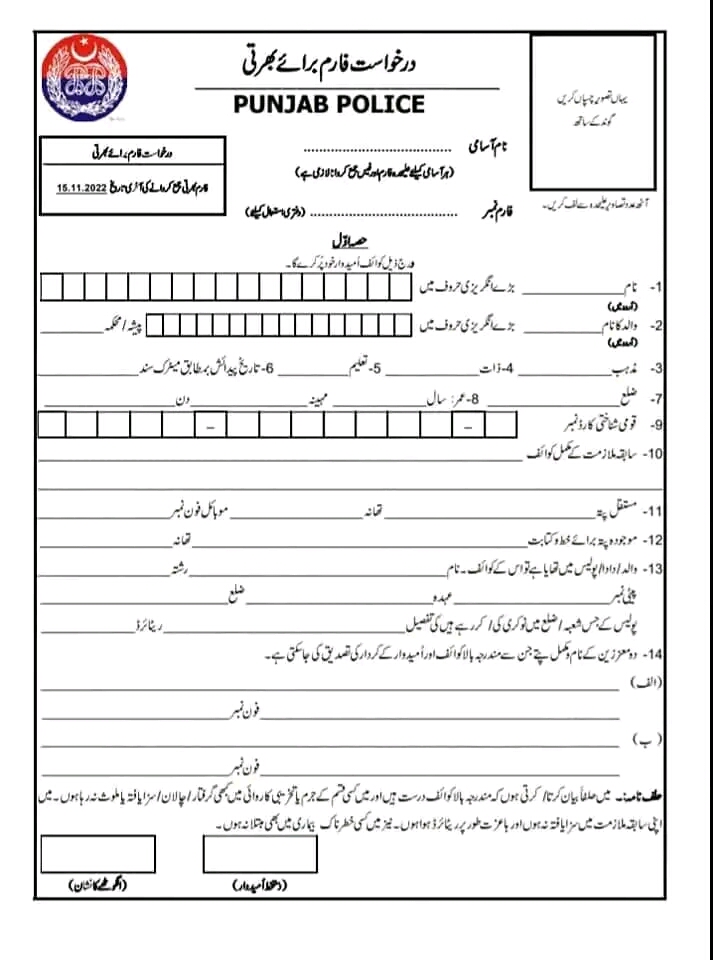 درخواست فارم برائے بھرتی
PUNJAB POLICE
یہاں تصویر چسپاں کریں
گوند کے ساتھ
آٹھ عدد تصاویر علیحدہ سے لف کریں۔
درخواست فارم برائے بھرتی
فارم بھرتی جمع کروانے کی آخری تاریخ 15.11.2022
نام آسامی ....................................
(ہر آسامی کیلئے علیحدہ فارم اور فیس جمع کروانا لازمی ہے)
فارم نمبر .................................... (دفتری استعمال کیلئے)
حصہ اوّل
درج ذیل کوائف اُمیدوار خود پُر کرے گا۔
1- نام ____________ بڑے انگریزی حروف میں
(اُردو میں)
2- والد کا نام ____________ بڑے انگریزی حروف میں پیشہ / محکمہ ____________
(اُردو میں)
3- مذہب ____________ 4- ذات ____________ 5- تعلیم ____________ 6- تاریخ پیدائش بمطابق میٹرک سند ____________
7- ضلع ____________ 8- عمر: سال ____________ مہینہ ____________ دن ____________
9- قومی شناختی کارڈ نمبر – –
10- سابقہ ملازمت کے مکمل کوائف ____________
11- مستقل پتہ ____________ تھانہ ____________ موبائل فون نمبر ____________
12- موجودہ پتہ برائے خط و کتابت ____________ تھانہ ____________
13- والد / دادا / پولیس میں تھا یا ہے تو اس کے کوائف۔ نام ____________ رشتہ ____________
پیٹی نمبر ____________ عہدہ ____________ ضلع ____________
پولیس کے جس شعبہ / ضلع میں نوکری کی / کر رہے ہیں کی تفصیل ____________ ریٹائرڈ ____________
14- دو معززین کے نام و مکمل پتے جن سے مندرجہ بالا کوائف اور اُمیدوار کے کردار کی تصدیق کی جا سکتی ہے۔
(الف) ____________
____________ فون نمبر ____________
(ب) ____________
____________ فون نمبر ____________
حلف نامہ:۔ میں حلفاً بیان کرتا / کرتی ہوں کہ مندرجہ بالا کوائف درست ہیں اور میں کسی قسم کے جرم یا تخریبی کاروائی میں کبھی گرفتار / چالان / سزا یافتہ یا ملوث نہ رہا ہوں۔ میں
اپنی سابقہ ملازمت میں سزا یافتہ نہ ہوں اور باعزت طور پر ریٹائرڈ ہوا ہوں۔ نیز میں کسی خطرناک بیماری میں بھی مبتلا نہ ہوں۔
(دستخط اُمیدوار) (انگوٹھے کا نشان)